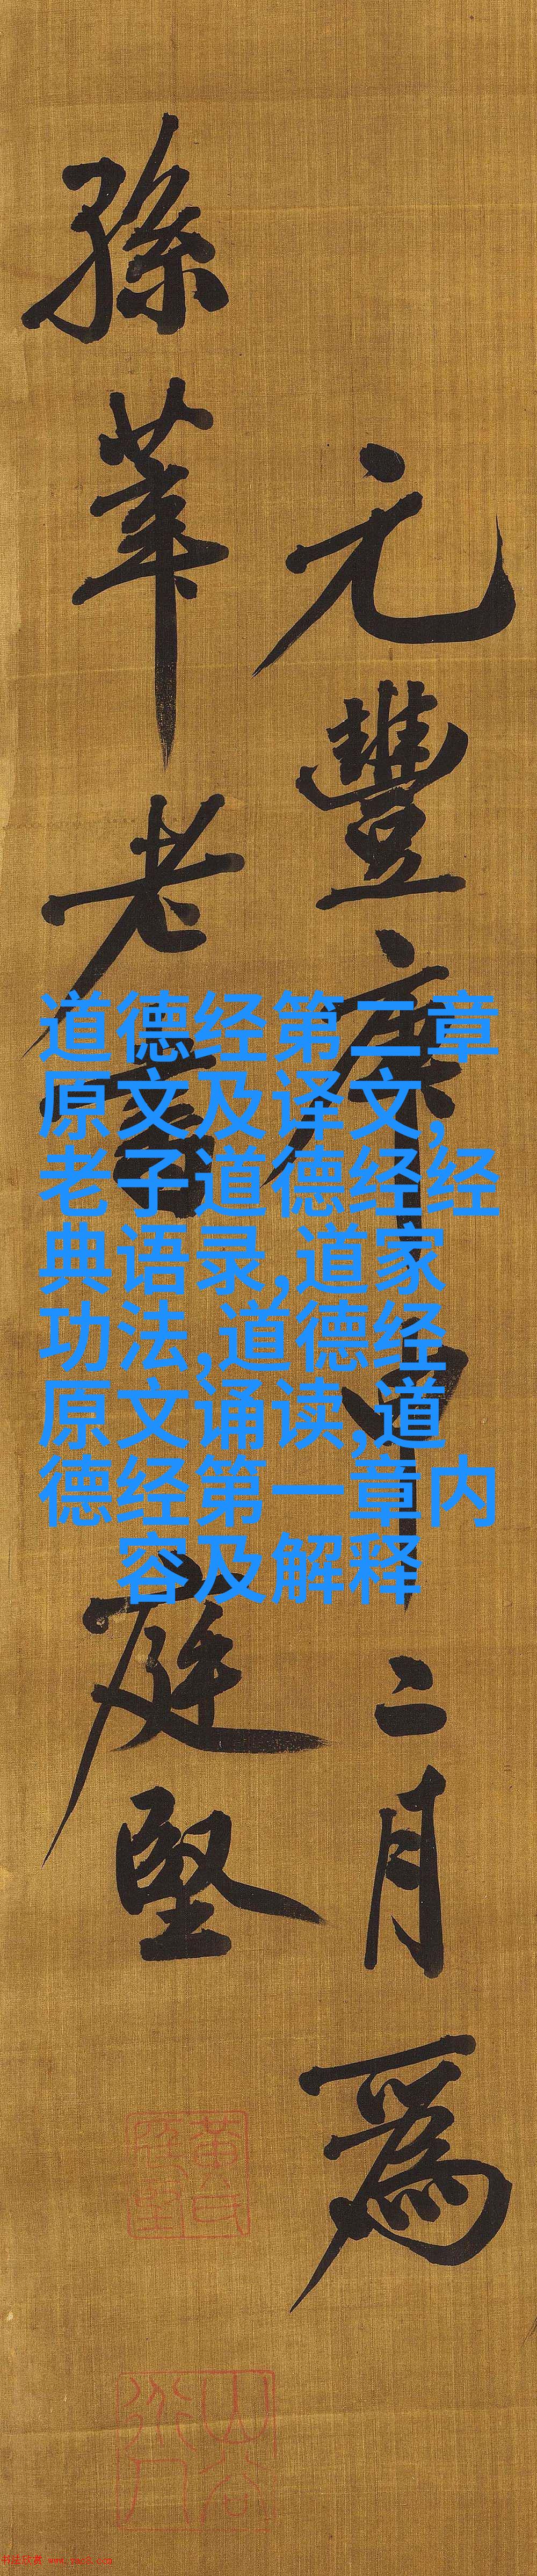 元豐庚申二月為
孫莘老書
庭堅
道德经第二章
原文及译文,
老子道德经经
典语录,道家
功法,道德经
原文诵读,道
德经第一章内
容及解释
书法欣赏 www.yac8.com